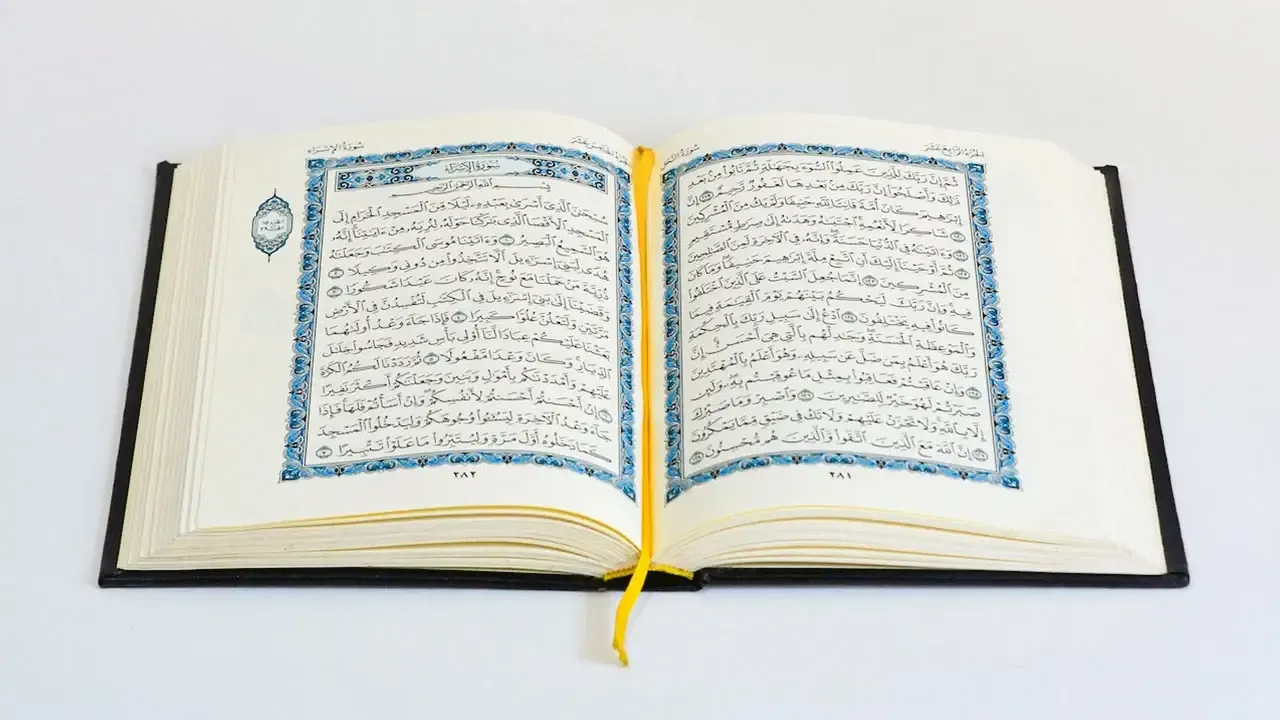 الجزء الرابع عشر سورة النحل
ثُمَّ إِنَّ رَبَّكَ لِلَّذِينَ عَمِلُواْ ٱلسُّوٓءَ بِجَهَٰلَةٖ ثُمَّ تَابُواْ مِنۢ بَعۡدِ
ذَٰلِكَ وَأَصۡلَحُوٓاْ إِنَّ رَبَّكَ مِنۢ بَعۡدِهَا لَغَفُورٞ رَّحِيمٌ ١١٩ إِنَّ
إِبۡرَٰهِيمَ كَانَ أُمَّةٗ قَانِتٗا لِّلَّهِ حَنِيفٗا وَلَمۡ يَكُ مِنَ ٱلۡمُشۡرِكِينَ
١٢٠ شَاكِرٗا لِّأَنۡعُمِهِۚ ٱجۡتَبَىٰهُ وَهَدَىٰهُ إِلَىٰ صِرَٰطٖ مُّسۡتَقِيمٖ
١٢١ وَءَاتَيۡنَٰهُ فِي ٱلدُّنۡيَا حَسَنَةٗۖ وَإِنَّهُۥ فِي ٱلۡأٓخِرَةِ لَمِنَ ٱلصَّٰلِحِينَ
١٢٢ ثُمَّ أَوۡحَيۡنَآ إِلَيۡكَ أَنِ ٱتَّبِعۡ مِلَّةَ إِبۡرَٰهِيمَ حَنِيفٗاۖ وَمَا كَانَ
مِنَ ٱلۡمُشۡرِكِينَ ١٢٣ إِنَّمَا جُعِلَ ٱلسَّبۡتُ عَلَى ٱلَّذِينَ ٱخۡتَلَفُواْ
فِيهِۚ وَإِنَّ رَبَّكَ لَيَحۡكُمُ بَيۡنَهُمۡ يَوۡمَ ٱلۡقِيَٰمَةِ فِيمَا
كَانُواْ فِيهِ يَخۡتَلِفُونَ ١٢٤ ٱدۡعُ إِلَىٰ سَبِيلِ رَبِّكَ بِٱلۡحِكۡمَةِ
وَٱلۡمَوۡعِظَةِ ٱلۡحَسَنَةِۖ وَجَٰدِلۡهُم بِٱلَّتِي هِيَ أَحۡسَنُۚ إِنَّ
رَبَّكَ هُوَ أَعۡلَمُ بِمَن ضَلَّ عَن سَبِيلِهِۦ وَهُوَ أَعۡلَمُ بِٱلۡمُهۡتَدِينَ
١٢٥ وَإِنۡ عَاقَبۡتُمۡ فَعَاقِبُواْ بِمِثۡلِ مَا عُوقِبۡتُم بِهِۦۖ وَلَئِن
صَبَرۡتُمۡ لَهُوَ خَيۡرٞ لِّلصَّٰبِرِينَ ١٢٦ وَٱصۡبِرۡ وَمَا صَبۡرُكَ
إِلَّا بِٱللَّهِۚ وَلَا تَحۡزَنۡ عَلَيۡهِمۡ وَلَا تَكُ فِي ضَيۡقٖ مِّمَّا يَمۡكُرُونَ
١٢٧ إِنَّ ٱللَّهَ مَعَ ٱلَّذِينَ ٱتَّقَواْ وَّٱلَّذِينَ هُم مُّحۡسِنُونَ ١٢٨
٢٨١
الجزء الخامس عشر سورة الإسراء
سُورَةُ الإِسۡرَاءِ
بِسۡمِ ٱللَّهِ ٱلرَّحۡمَٰنِ ٱلرَّحِيمِ
سُبۡحَٰنَ ٱلَّذِيٓ أَسۡرَىٰ بِعَبۡدِهِۦ لَيۡلٗا مِّنَ ٱلۡمَسۡجِدِ ٱلۡحَرَامِ إِلَى
ٱلۡمَسۡجِدِ ٱلۡأَقۡصَا ٱلَّذِي بَٰرَكۡنَا حَوۡلَهُۥ لِنُرِيَهُۥ مِنۡ ءَايَٰتِنَآۚ إِنَّهُۥ
هُوَ ٱلسَّمِيعُ ٱلۡبَصِيرُ ١ وَءَاتَيۡنَا مُوسَى ٱلۡكِتَٰبَ وَجَعَلۡنَٰهُ
هُدٗى لِّبَنِيٓ إِسۡرَٰٓءِيلَ أَلَّا تَتَّخِذُواْ مِن دُونِي وَكِيلٗا ٢
ذُرِّيَّةَ مَنۡ حَمَلۡنَا مَعَ نُوحٍۚ إِنَّهُۥ كَانَ عَبۡدٗا شَكُورٗا ٣
وَقَضَيۡنَآ إِلَىٰ بَنِيٓ إِسۡرَٰٓءِيلَ فِي ٱلۡكِتَٰبِ لَتُفۡسِدُنَّ فِي ٱلۡأَرۡضِ
مَرَّتَيۡنِ وَلَتَعۡلُنَّ عُلُوّٗا كَبِيرٗا ٤ فَإِذَا جَآءَ وَعۡدُ أُولَىٰهُمَا
بَعَثۡنَا عَلَيۡكُمۡ عِبَادٗا لَّنَآ أُوْلِي بَأۡسٖ شَدِيدٖ فَجَاسُواْ خِلَٰلَ
ٱلدِّيَارِۚ وَكَانَ وَعۡدٗا مَّفۡعُولٗا ٥ ثُمَّ رَدَدۡنَا لَكُمُ ٱلۡكَرَّةَ
عَلَيۡهِمۡ وَأَمۡدَدۡنَٰكُم بِأَمۡوَٰلٖ وَبَنِينَ وَجَعَلۡنَٰكُمۡ أَكۡثَرَ نَفِيرًا
٦ إِنۡ أَحۡسَنتُمۡ أَحۡسَنتُمۡ لِأَنفُسِكُمۡۖ وَإِنۡ أَسَأۡتُمۡ فَلَهَاۚ فَإِذَا
جَآءَ وَعۡدُ ٱلۡأٓخِرَةِ لِيَسُـُٔواْ وُجُوهَكُمۡ وَلِيَدۡخُلُواْ ٱلۡمَسۡجِدَ
كَمَا دَخَلُوهُ أَوَّلَ مَرَّةٖ وَلِيُتَبِّرُواْ مَا عَلَوۡاْ تَتۡبِيرًا ٧
٢٨٢